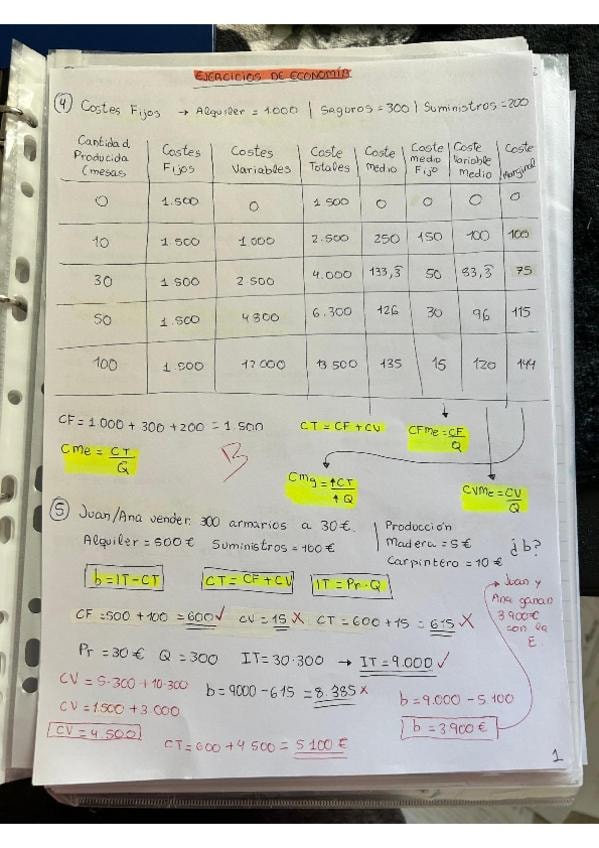 EJERCICIOS DE ECONOMÍA
4 Costes Fijos → Alquiler = 1.000 | Seguros = 300 | Suministros = 200
Cantidad Producida (mesas | Costes Fijos | Costes Variables | Coste Totales | Coste medio | Coste medio Fijo | Coste Variable Medio | Coste Marginal
0 | 1.500 | 0 | 1 500 | 0 | 0 | 0 | 0
10 | 1.500 | 1.000 | 2.500 | 250 | 150 | 100 | 100
30 | 1 500 | 2.500 | 4.000 | 133,3 | 50 | 83,3 | 75
50 | 1.500 | 4 800 | 6.300 | 126 | 30 | 96 | 115
100 | 1.500 | 12 000 | 13 500 | 135 | 15 | 120 | 144
CF = 1.000 + 300 + 200 = 1.500
CT = CF + CV
CFMe = CF/Q
CMe = CT/Q
B
CMg = ↑CT/↑Q
CVMe = CV/Q
5 Juan/Ana vender: 300 armarios a 30€.
Alquiler = 500€ Suministros = 100€
Producción
Madera = 5€
Carpintero = 10€
¿b?
b = IT - CT
CT = CF + CV
IT = Pr · Q
→ Juan y
Ana ganan
3 900€
con la
E.
CF = 500 + 100 = 600 ✓ CV = 15 X CT = 600 + 15 = 615 X
Pr = 30€ Q = 300 IT = 30·300 → IT = 9.000 ✓
CV = 5·300 + 10·300
b = 9000 - 615 = 8.385 x
b = 9.000 - 5.100
CV = 1.500 + 3.000
b = 3.900€
CV = 4.500
CT = 600 + 4 500 = 5 100€
1